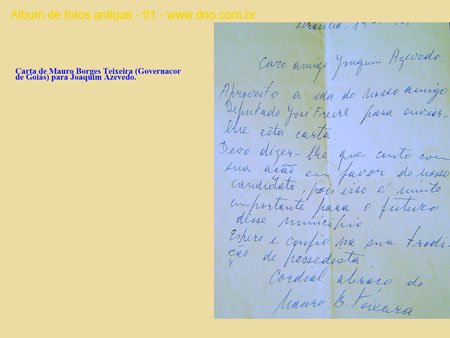 Album de fotos antigas - 01 - www.dno.com.br
Carta de Mauro Borges Teixeira (Governacor
de Goias) para Joaquim Azevedo.
Brasília,
Caro amigo Joaquim Azevedo.
Aproveito a ida do nosso amigo
Deputado José Freire para enviar-
lhe esta carta.
Devo dizer-lhe que conto com
sua ação em favor do nosso
candidato, pois isso é muito
importante para o futuro
desse município
Espero e confio na sua tradi-
ção de pessedista.
Cordial abraço do
Mauro B. Teixeira